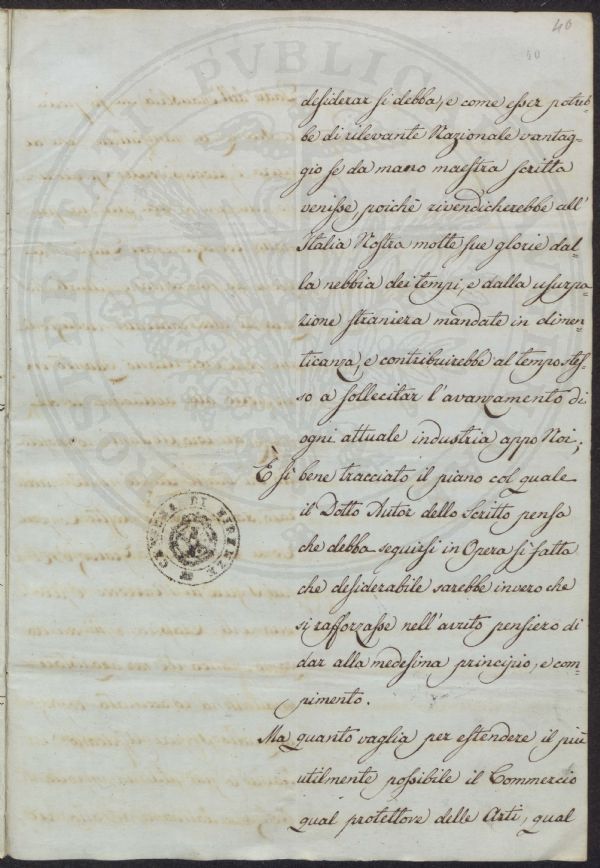 40
40
desiderar si debba, e come esser potreb-
be di rilevante Nazionale vantag-
gio se da mano maestra scritta
venisse, poichè rivendicherebbe all'
Italia Nostra molte sue glorie dal-
la nebbia dei tempi, e dalla usurpa-
zione straniera mandate in dimen-
ticanza, e contribuirebbe al tempo stes-
so a sollecitar l'avanzamento di
ogni attuale industria appo Noi;
È sì bene tracciato il piano col quale
il Dotto Autor dello Scritto pensa
che debba seguirsi in Opera sì fatta
che desiderabile sarebbe invero che
si rafforzasse nell'avuto pensiero di
dar alla medesima principio, e com-
pimento.
Ma quanto vaglia per estendere il più
utilmente possibile il Commercio
qual protettore delle Arti, qual
PROSPERITATI PUBLICAE
DI FIRENZE